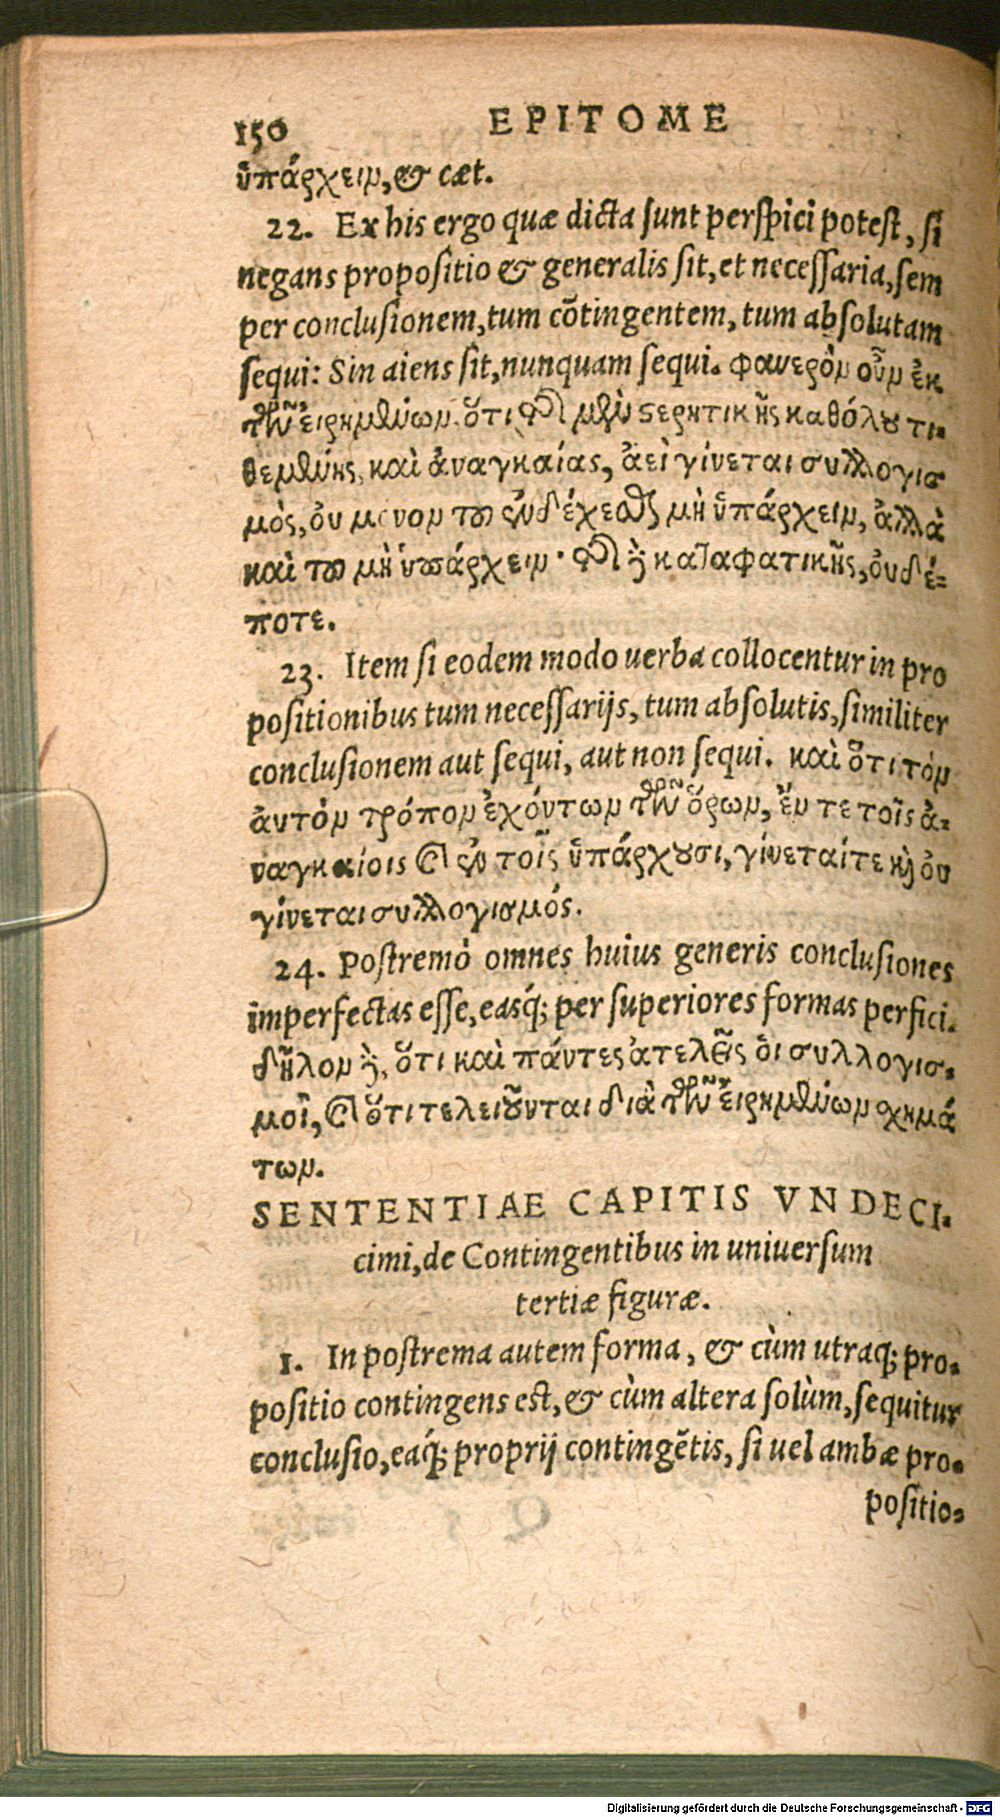 150 EPITOME
ὑπάρχειν, & cæt.
22. Ex his ergo quæ dicta sunt perspici potest, si
negans propositio & generalis sit, et necessaria, sem
per conclusionem, tum cõtingentem, tum absolutam
sequi: Sin aiens sit, nunquam sequi. φανερὸν οὖν ἐκ
τῶν εἰρημένων, ὅτι τῆς μὲν στερητικῆς καθόλου τι-
θεμένης, καὶ ἀναγκαίας, ἀεὶ γίνεται συλλογισ
μὸς, οὐ μόνον τοῦ ἐνδέχεσθαι μὴ ὑπάρχειν, ἀλλὰ
καὶ τοῦ μὴ ὑπάρχειν· τῆς δὲ καταφατικῆς, οὐδέ-
ποτε.
23. Item si eodem modo uerba collocentur in pro
positionibus tum necessarijs, tum absolutis, similiter
conclusionem aut sequi, aut non sequi. καὶ ὅτι τὸν
αὐτὸν τρόπον ἐχόντων τῶν ὅρων, ἔν τε τοῖς ἀ-
ναγκαίοις καὶ ἐν τοῖς ὑπάρχουσι, γίνεταί τε καὶ οὐ
γίνεται συλλογισμός.
24. Postremò omnes huius generis conclusiones
imperfectas esse, easq́; per superiores formas perfici.
δῆλον δὲ, ὅτι καὶ πάντες ἀτελεῖς οἱ συλλογισ-
μοὶ, καὶ ὅτι τελειοῦνται διὰ τῶν εἰρημένων σχημά
των.
SENTENTIAE CAPITIS VNDECI-
cimi, de Contingentibus in uniuersum
tertiæ figuræ.
1. In postrema autem forma, & cùm utraq; pro-
positio contingens est, & cùm altera solùm, sequitur
conclusio, eaq́; proprij contingẽtis, si uel ambæ pro-
positio-
Digitalisierung gefördert durch die Deutsche Forschungsgemeinschaft - DFG